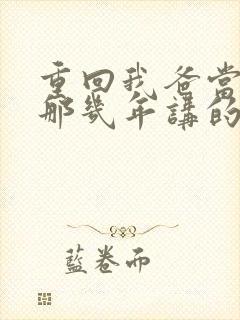 重回我爸當
那幾年講的
藍卷而